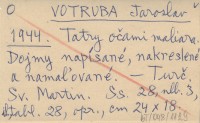 O VOTRUBA Jaroslav
1944. Tatry očami maliara.
Dojmy napísané, nakreslené
a namalované. — Turč.
Sv. Martin. Ss. 28, nll. 3,
tabl. 28, opr., cm 24 x 18.